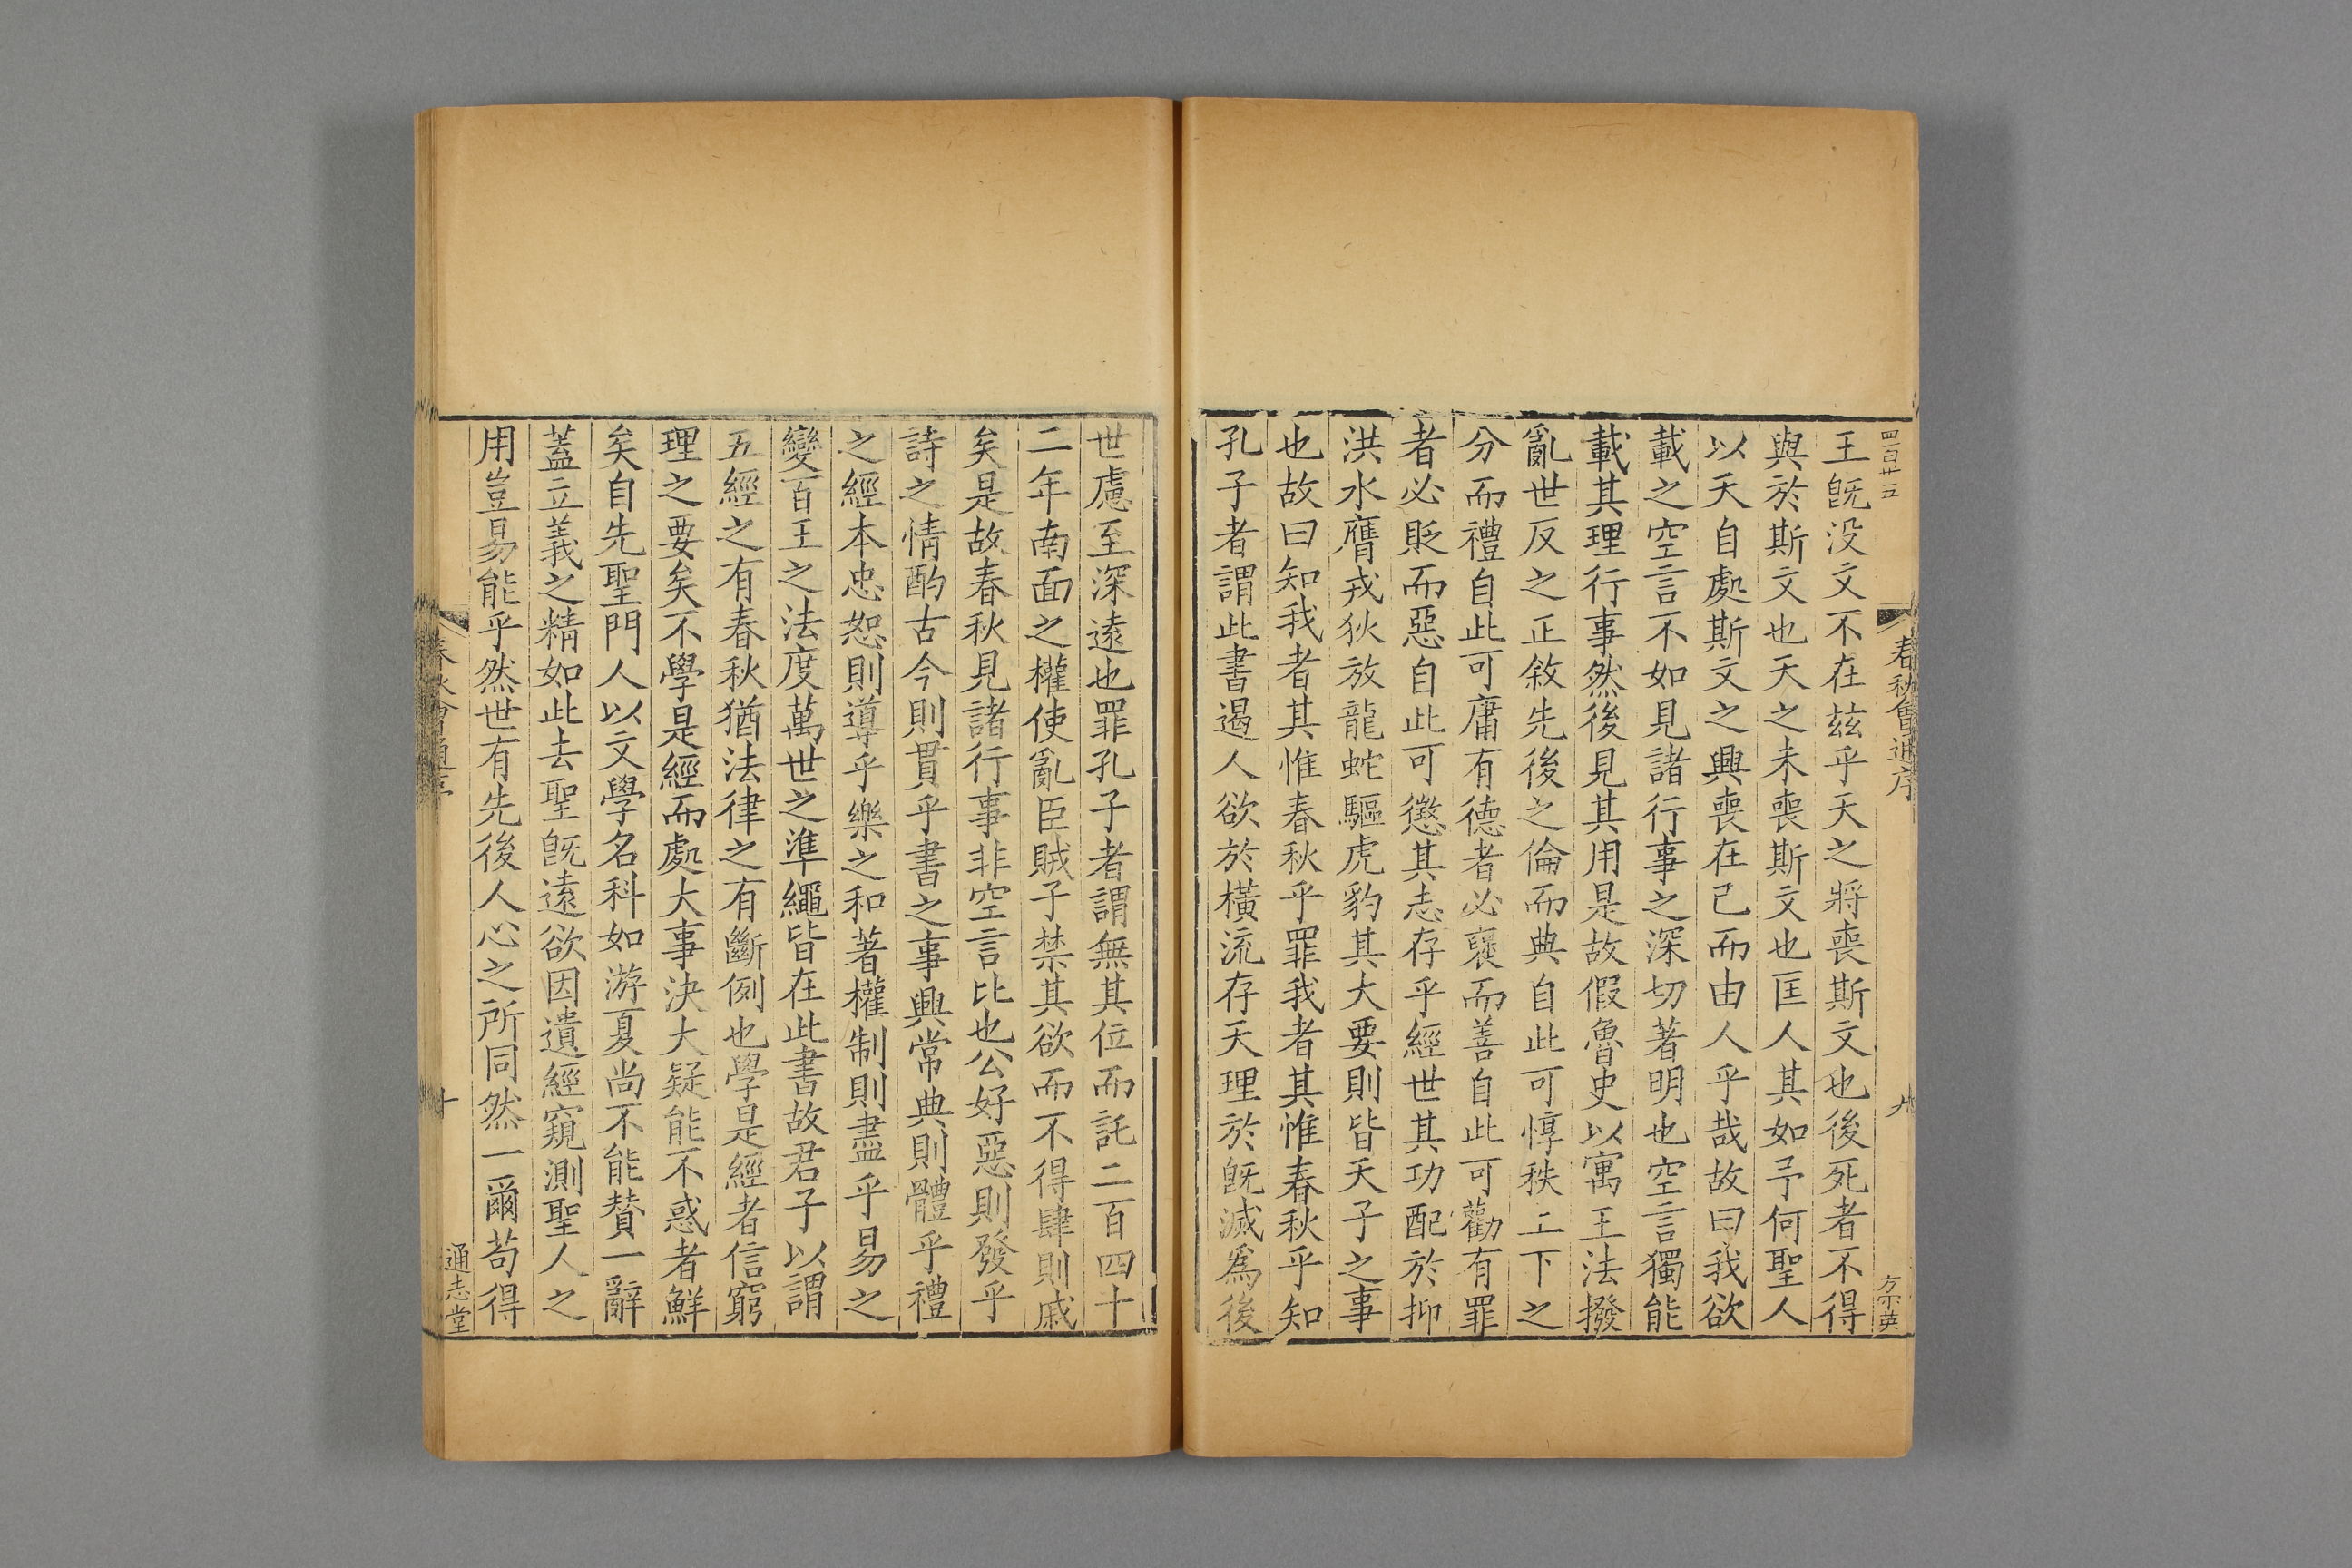 四百廿五
春秋會通序
九
方宗英
王旣没文不在玆乎天之將喪斯文也後死者不得
與於斯文也天之未喪斯文也匡人其如予何聖人
以天自處斯文之興喪在己而由人乎哉故曰我欲
載之空言不如見諸行事之深切著明也空言獨能
載其理行事然後見其用是故假魯史以寓王法撥
亂世反之正敘先後之倫而典自此可惇秩上下之
分而禮自此可庸有德者必襃而善自此可勸有罪
者必貶而惡自此可懲其志存乎經世其功配於抑
洪水膺戎狄放龍蛇驅虎豹其大要則皆天子之事
也故曰知我者其惟春秋乎罪我者其惟春秋乎知
孔子者謂此書遏人欲於橫流存天理於旣滅爲後
世慮至深遠也罪孔子者謂無其位而託二百四十
二年南面之權使亂臣賊子禁其欲而不得肆則戚
矣是故春秋見諸行事非空言比也公好惡則發乎
詩之情酌古今則貫乎書之事興常典則體乎禮
之經本忠恕則導乎樂之和著權制則盡乎易之
變百王之法度萬世之準繩皆在此書故君子以謂
五經之有春秋猶法律之有斷例也學是經者信窮
理之要矣不學是經而處大事決大疑能不惑者鮮
矣自先聖門人以文學名科如游夏尚不能贊一辭
蓋立義之精如此去聖旣遠欲因遺經窺測聖人之
用豈易能乎然世有先後人心之所同然一爾苟得
春秋會通序
十
通志堂